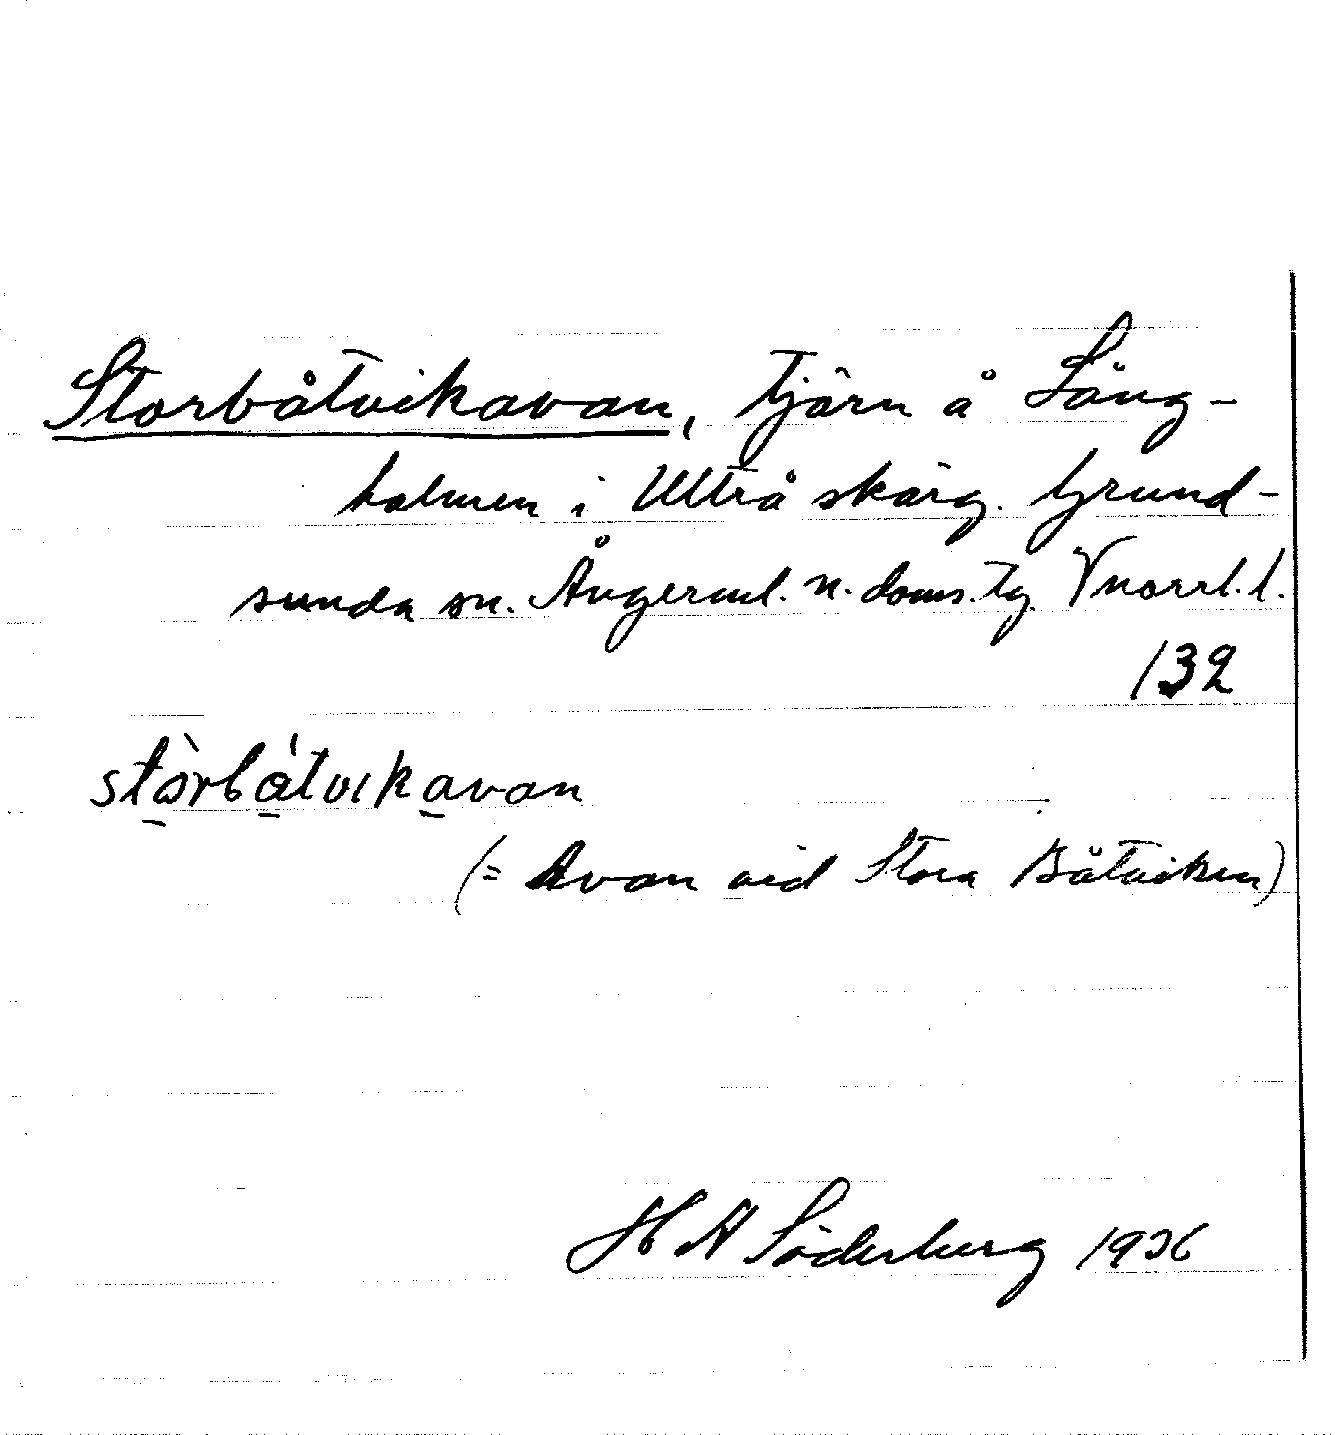 Storbåtvikavan, tjärn å Lång-
holmen i Ultrå skärg. Grund-
sunda sn. Ångerml. n. doms. tg. Vnorrl. l.
132
stò̱rbá̱tvika̱van
(= Avan vid Stora Båtviken)
H A Söderberg 1936